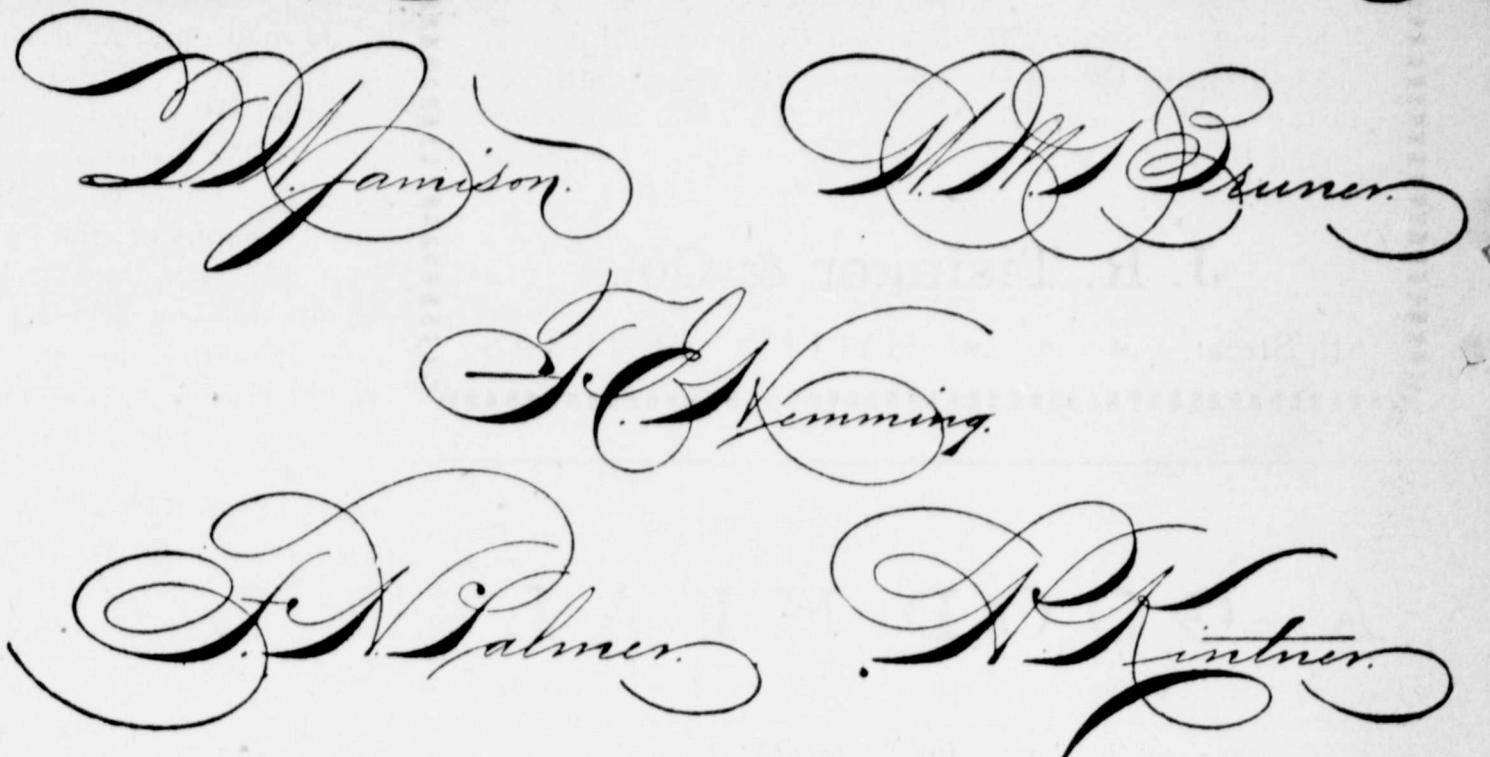 D. W. Jamison.
W. M. Bruner.
F. E. Hemming.
F. N. Palmer.
W. P. Kintner.